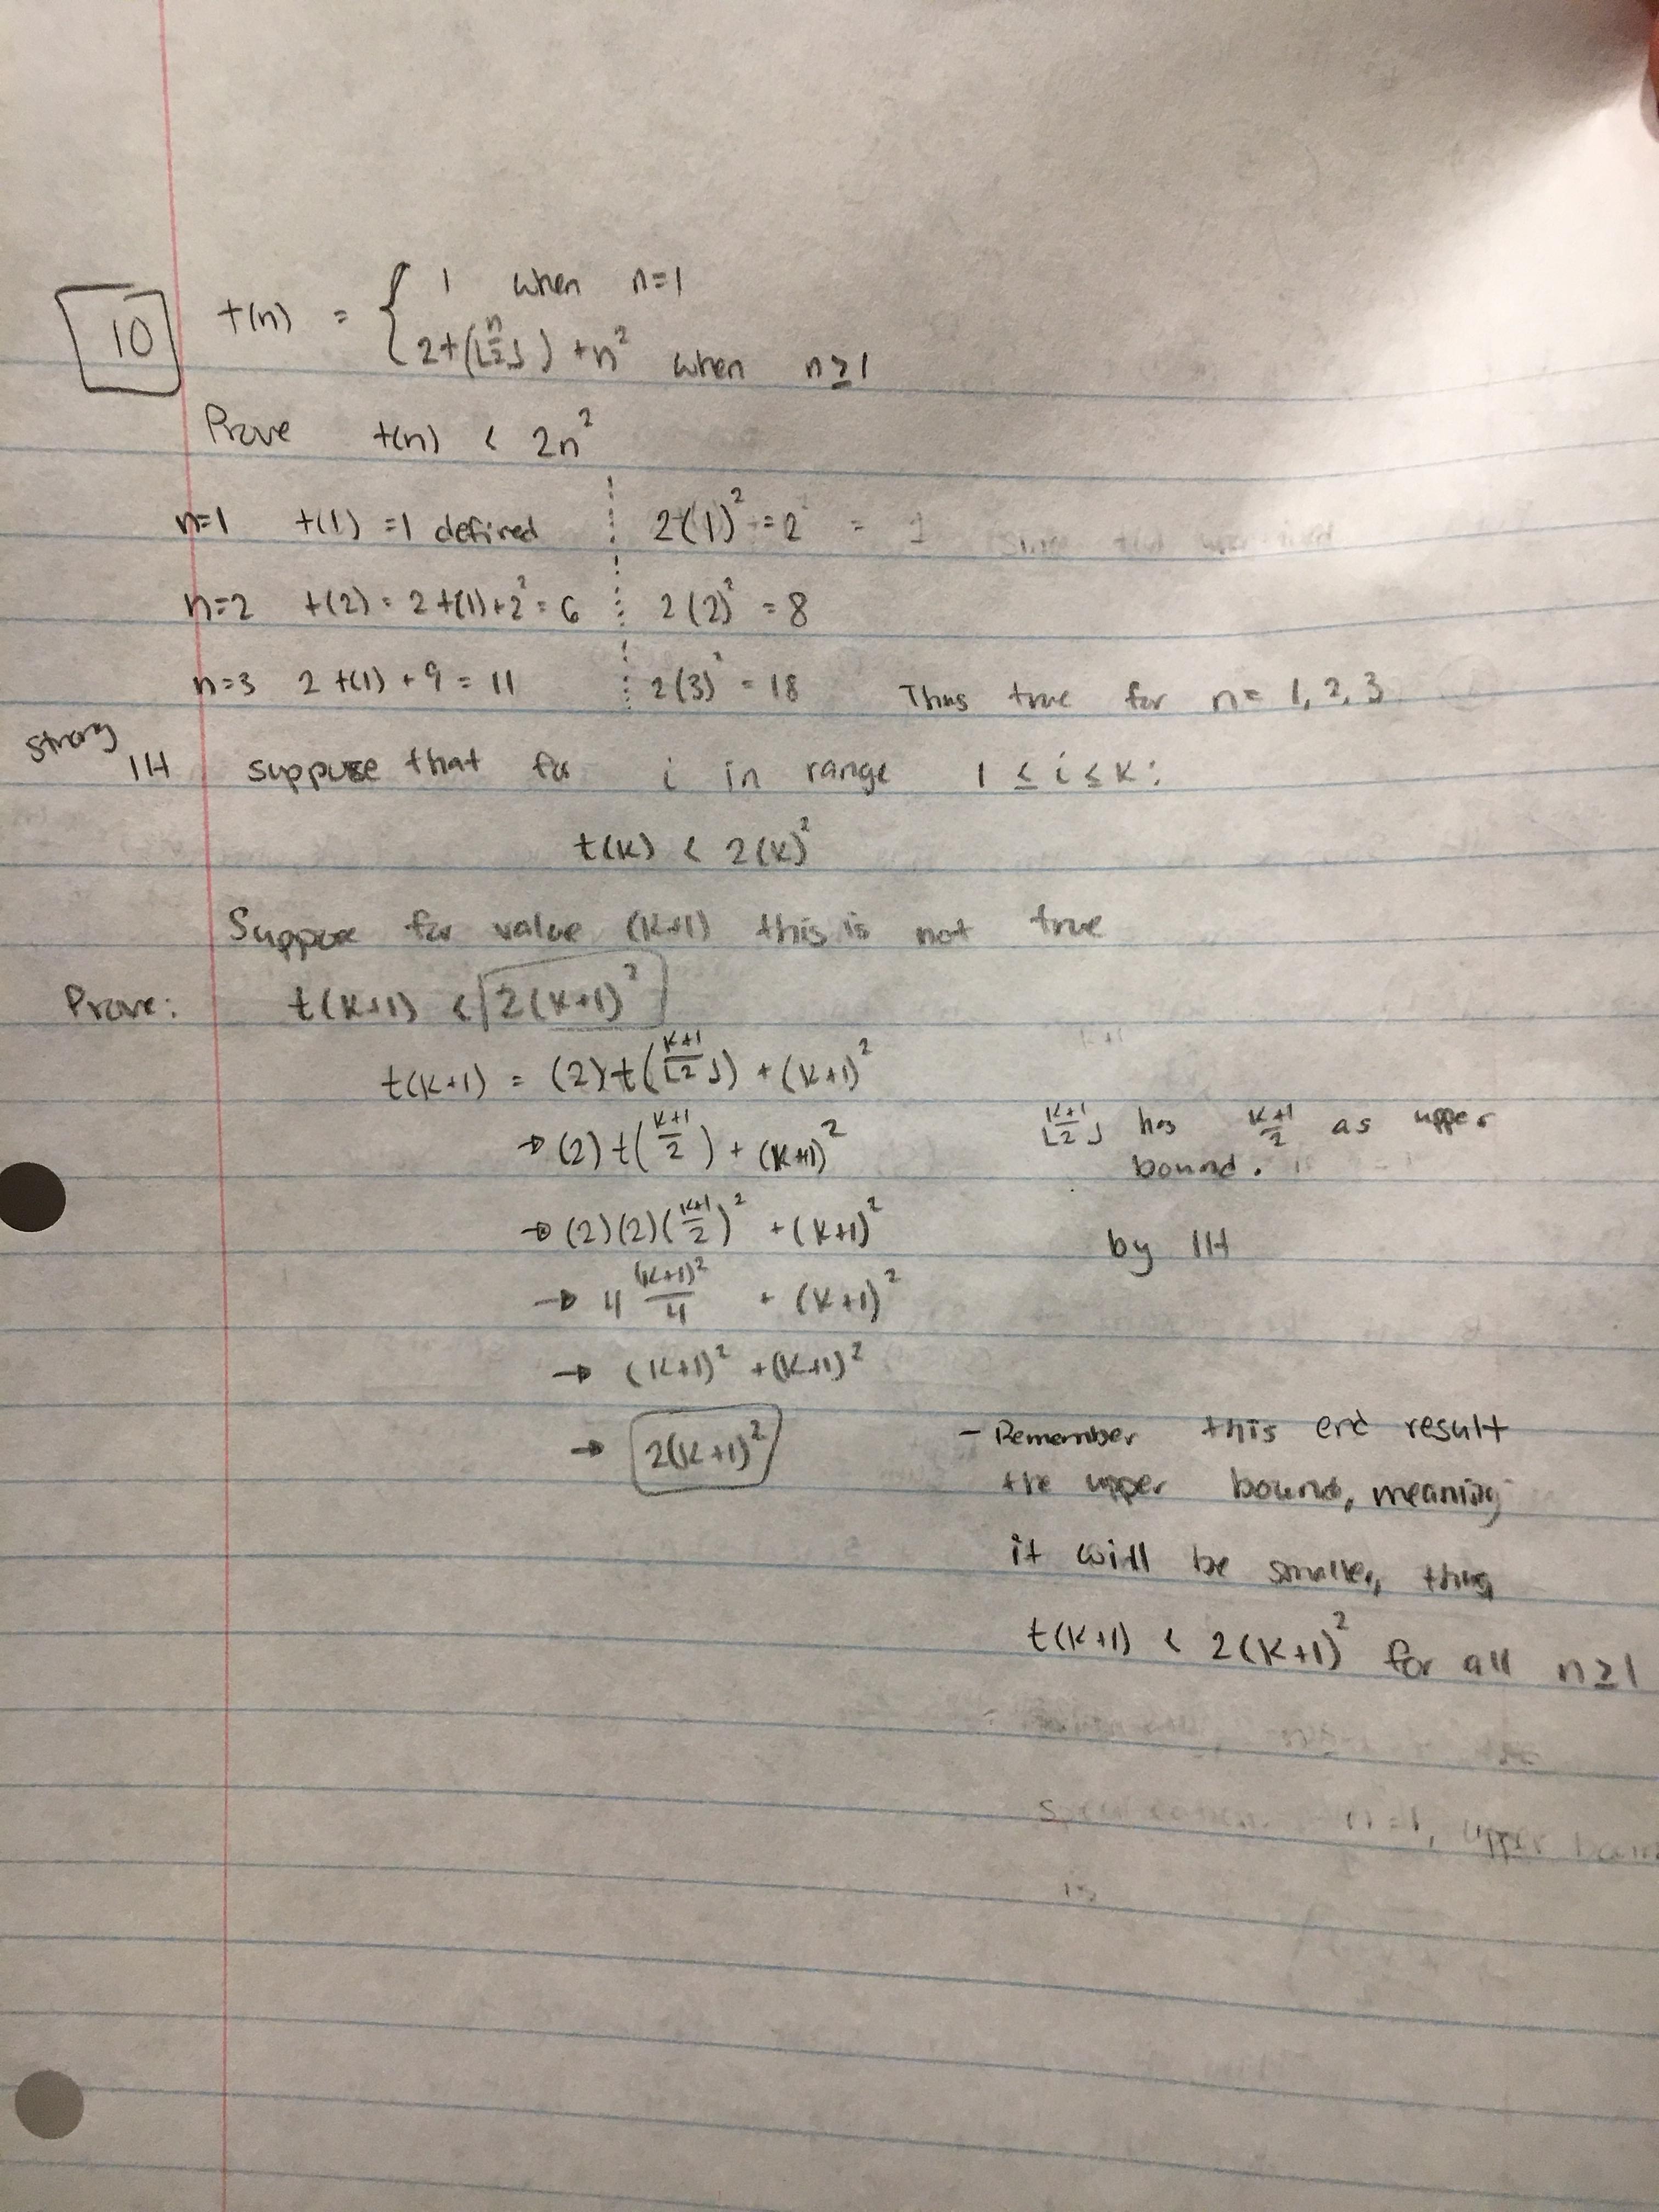 10
t(n) = { 1 when n=1
2t(⌊n/2⌋) + n² when n≥1
Prove t(n) < 2n²
n=1 t(1) = 1 defined 2(1)² = 2 = 1
n=2 t(2) = 2t(1)+2² = 6 2(2)² = 8
n=3 2t(1) + 9 = 11 2(3)² = 18 Thus true for n= 1, 2, 3
strong
IH suppose that for i in range 1 ≤ i ≤ k:
t(k) < 2(k)²
Suppose for value (k+1) this is not true
Prove: t(k+1) < 2(k+1)²
t(k+1) = (2)t(⌊k+1/2⌋) + (k+1)²
→ (2)t(k+1/2) + (k+1)² ⌊k+1/2⌋ has k+1/2 as upper
bound.
→ (2)(2)(k+1/2)² + (k+1)² by IH
→ 4 (k+1)²/4 + (k+1)²
→ (k+1)² + (k+1)²
→ 2(k+1)² - Remember this end result
the upper bound, meaning
it will be smaller, thus
t(k+1) < 2(k+1)² for all n≥1
n=1, upper
is